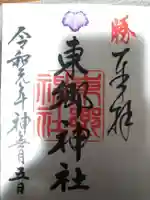 勝
奉拝
東郷神社
東郷神社
令和元年神月五日